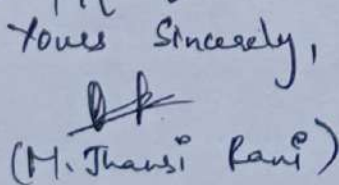 Yours Sincerely,
(M. Jhansi Rani)